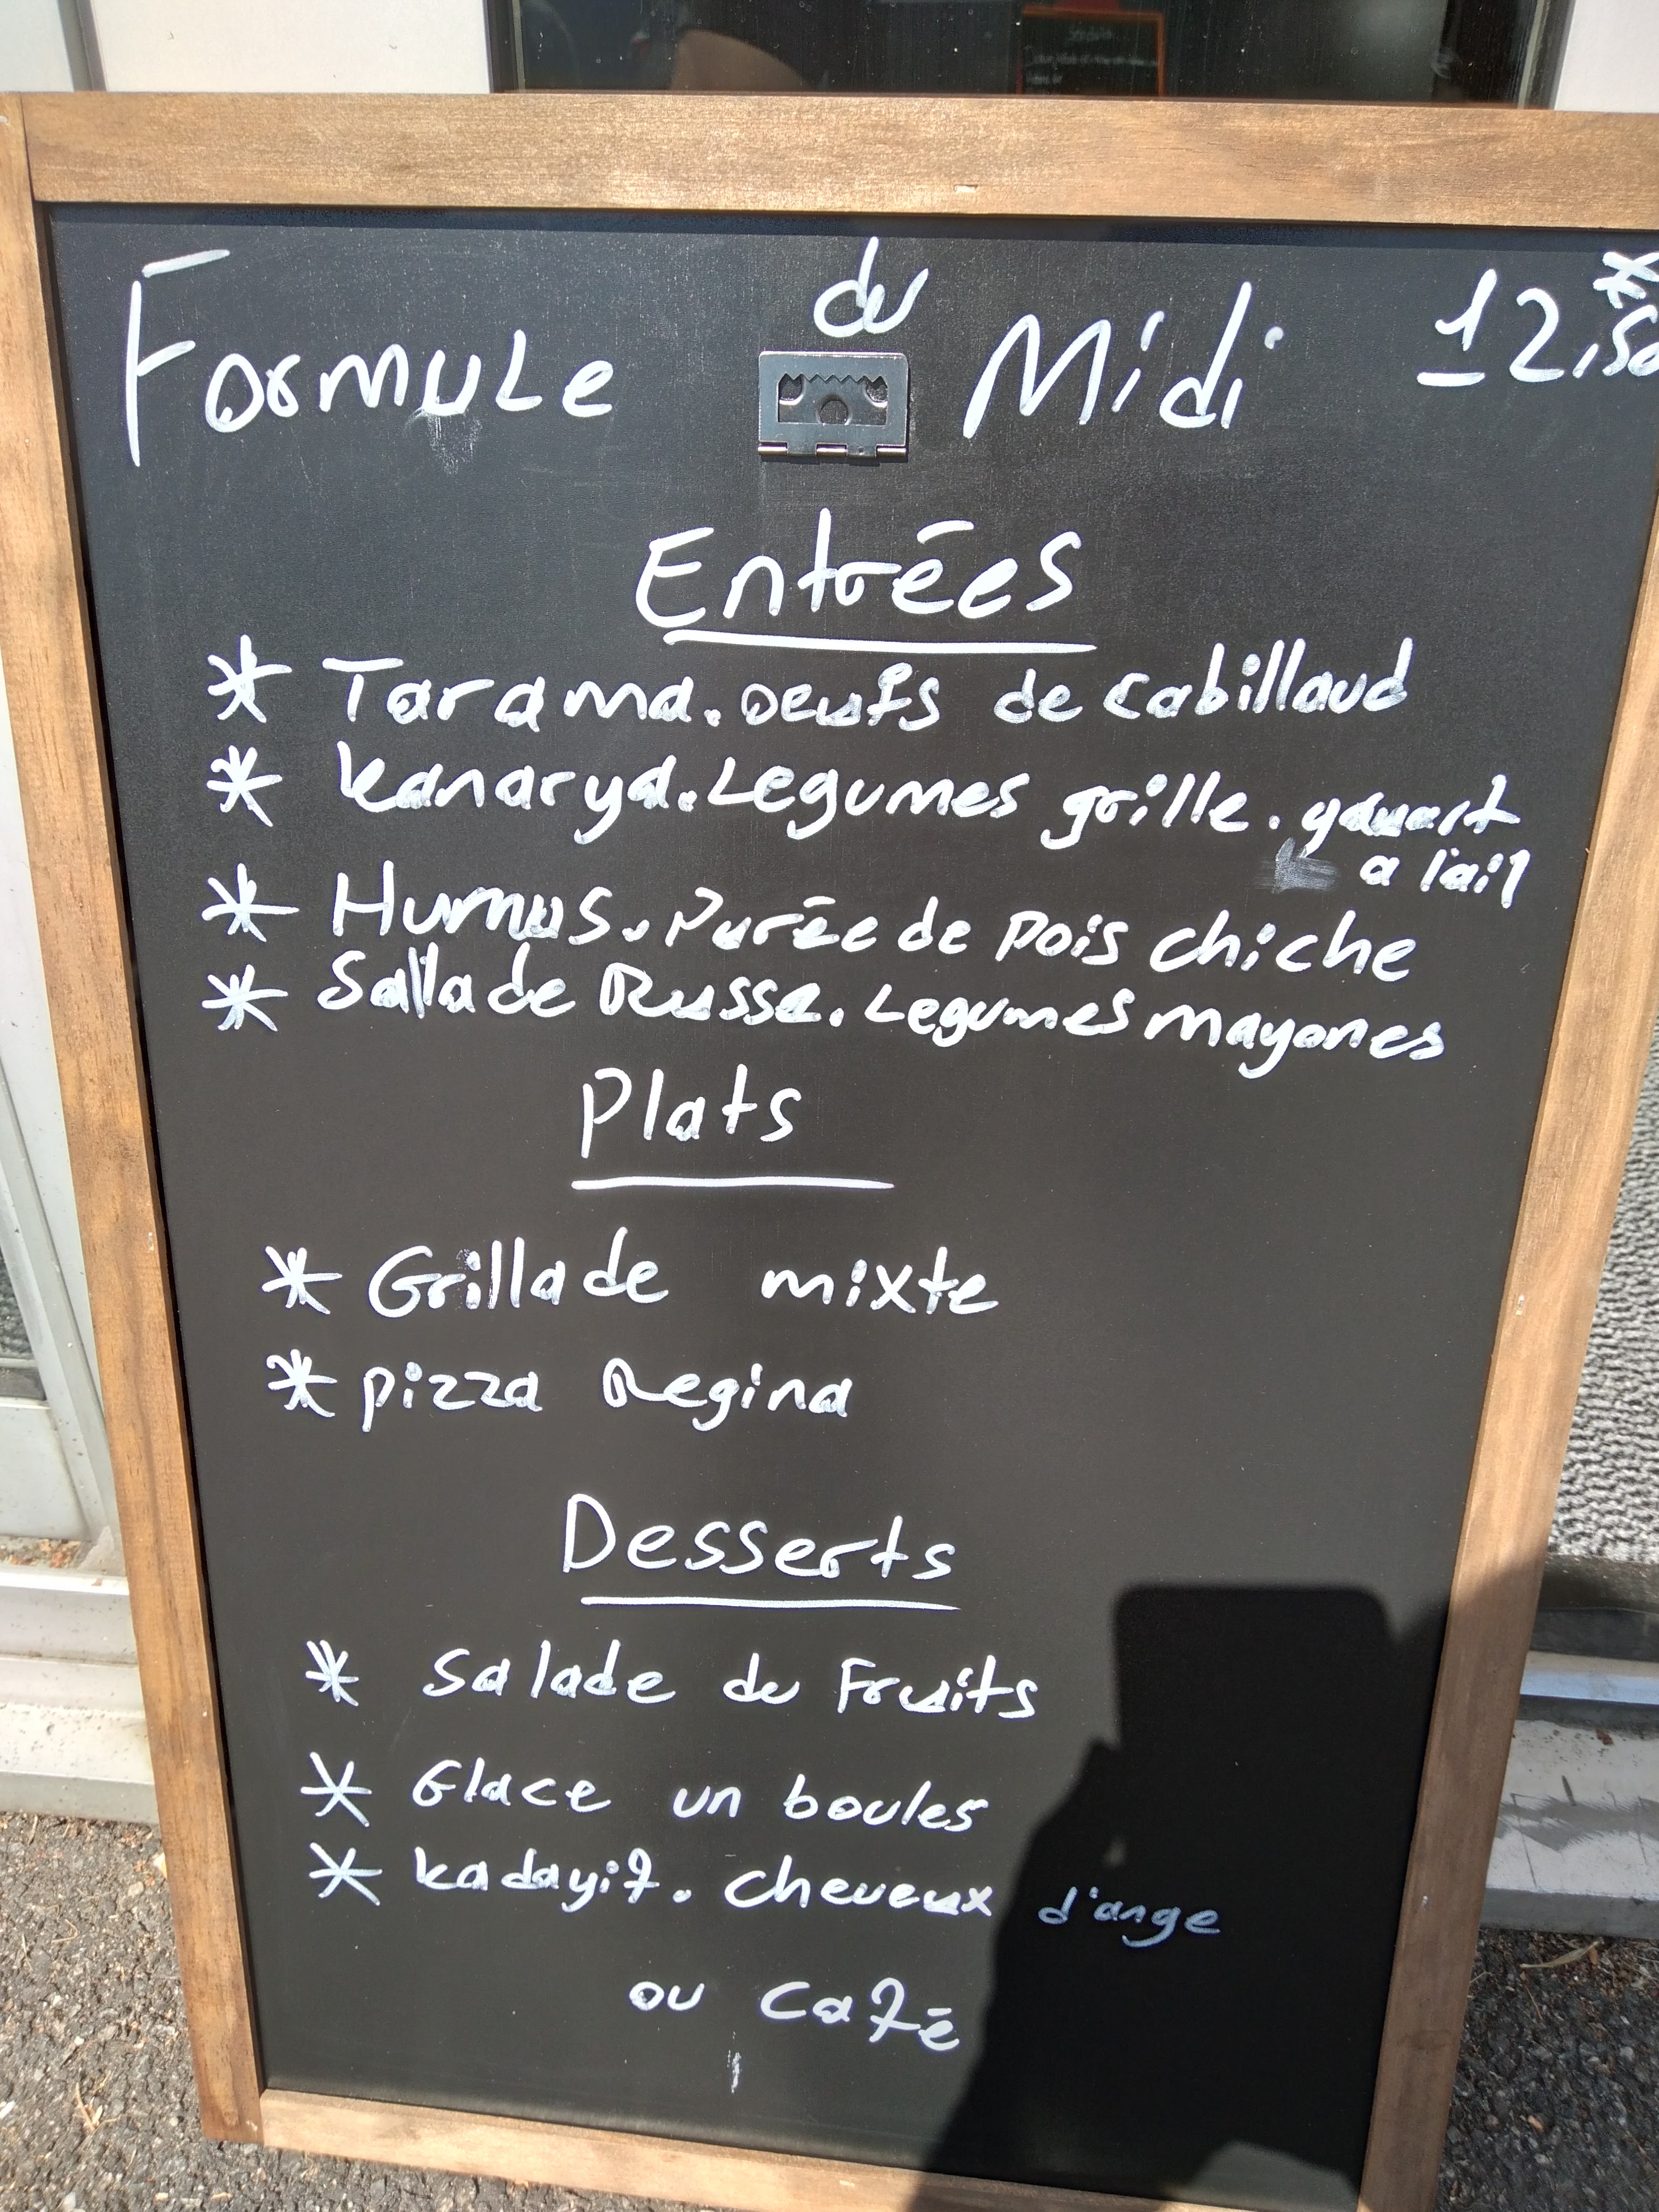 Formule du Midi 12,50
Entrées
* Tarama. oeufs de cabillaud
* kanarya. Legumes grille. yaourt
a l'ail
* Humus. Purée de pois chiche
* Sallade Russe. Legumes mayones
Plats
* Grillade mixte
* pizza Regina
Desserts
* Salade du Fruits
* Glace un boules
* kadayif. cheveux d'ange
ou café